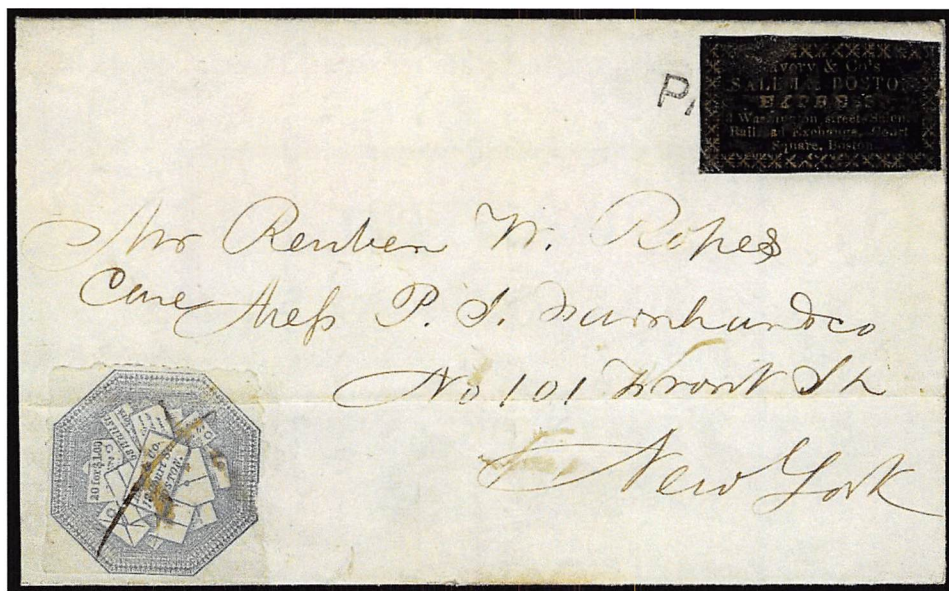 PA
avery & Co's
SALEM & BOSTON
EXPRESS
Washington street Salem
Railroad Exchange, Court
Square, Boston
Mr Reuben W. Ropes
Care Mess P. I. & co
No 101 Front St
New York
20 for $1.00
& Co.
Court St
BOSTON.